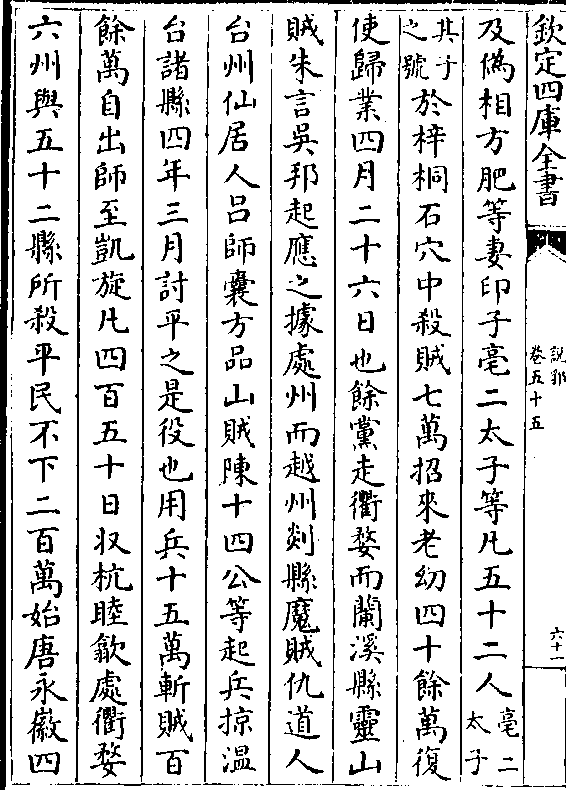 欽定四庫全書
說郛
卷五十五
六十一
及偽相方肥等妻印子亳二太子等凡五十二人亳二太子
其子之號於梓桐石穴中殺賊七萬招來老幼四十餘萬復
使歸業四月二十六日也餘黨走衢婺而蘭溪縣靈山
賊朱言吳邦起應之據處州而越州剡縣魔賊仇道人
台州仙居人吕師囊方品山賊陳十四公等起兵掠溫
台諸縣四年三月討平之是役也用兵十五萬斬賊百
餘萬自出師至凱旋凡四百五十日収杭睦歙處衢婺
六州與五十二縣所殺平民不下二百萬始唐永徽四